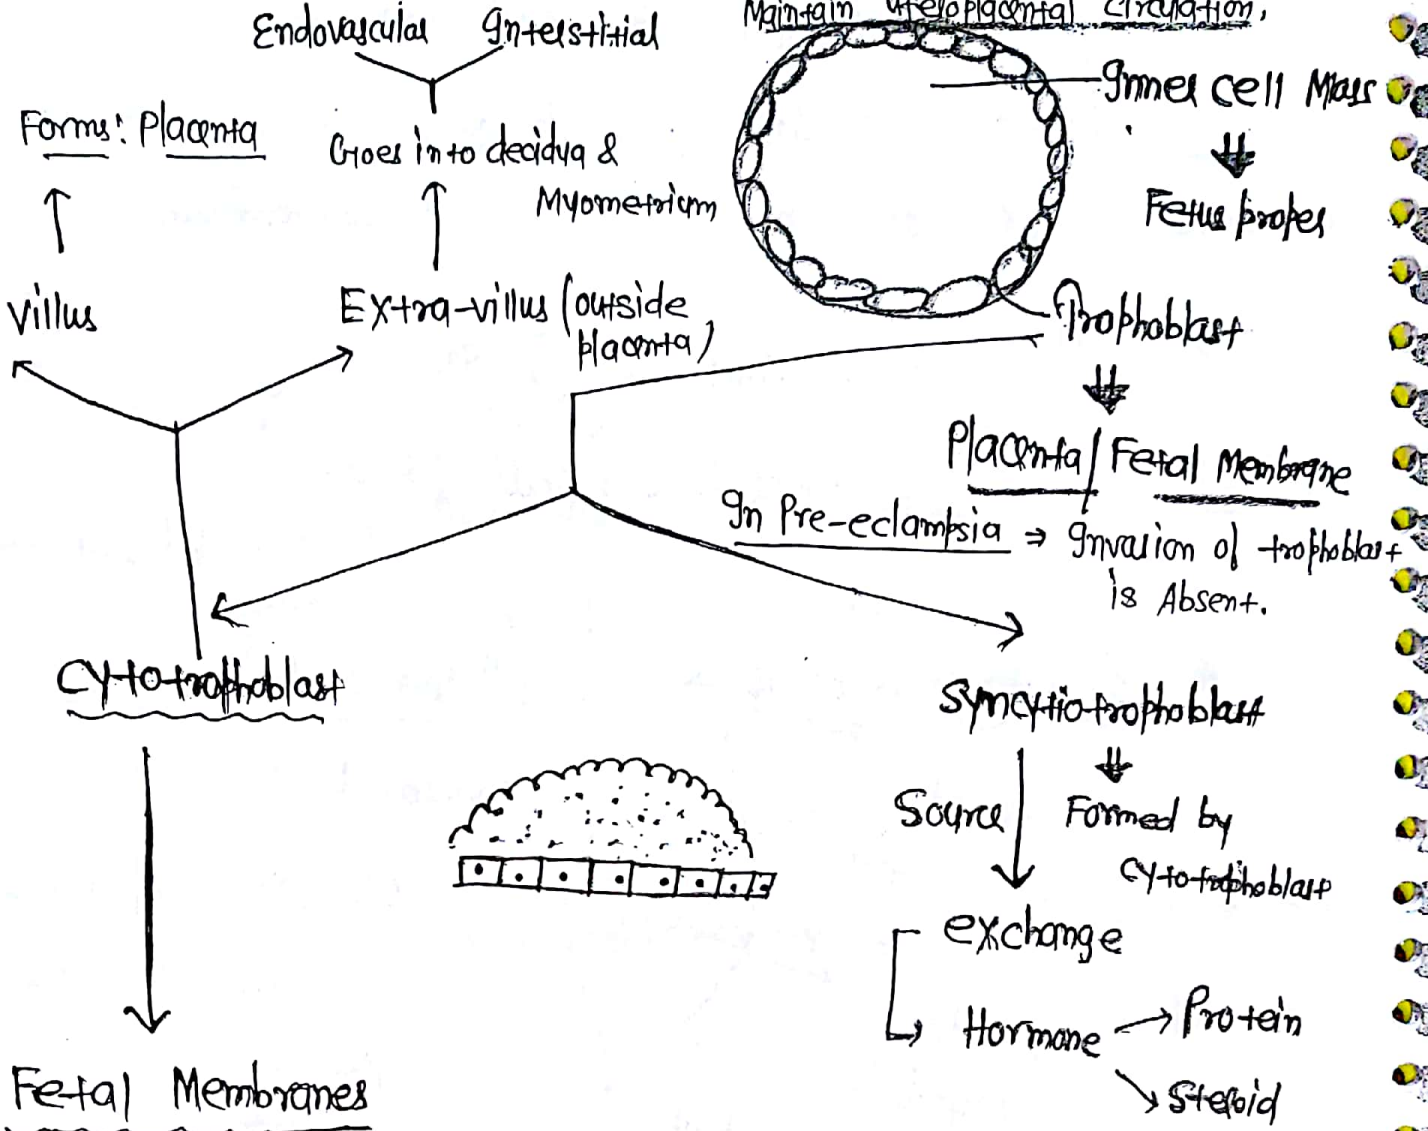 Maintain uteroplacental circulation,
Endovascular Interstitial
Inner cell Mass
Forms: Placenta
Goes into decidua &
Myometrium
Fetus proper
Villus
Extra-villus (outside
placenta)
Trophoblast
Placenta/Fetal Membrane
In Pre-eclampsia ⇒ Invasion of trophoblast
is Absent.
Cytotrophoblast
Syncytiotrophoblast
Source
Formed by
Cytotrophoblast
exchange
Hormone → Protein
↘ Steroid
Fetal Membranes